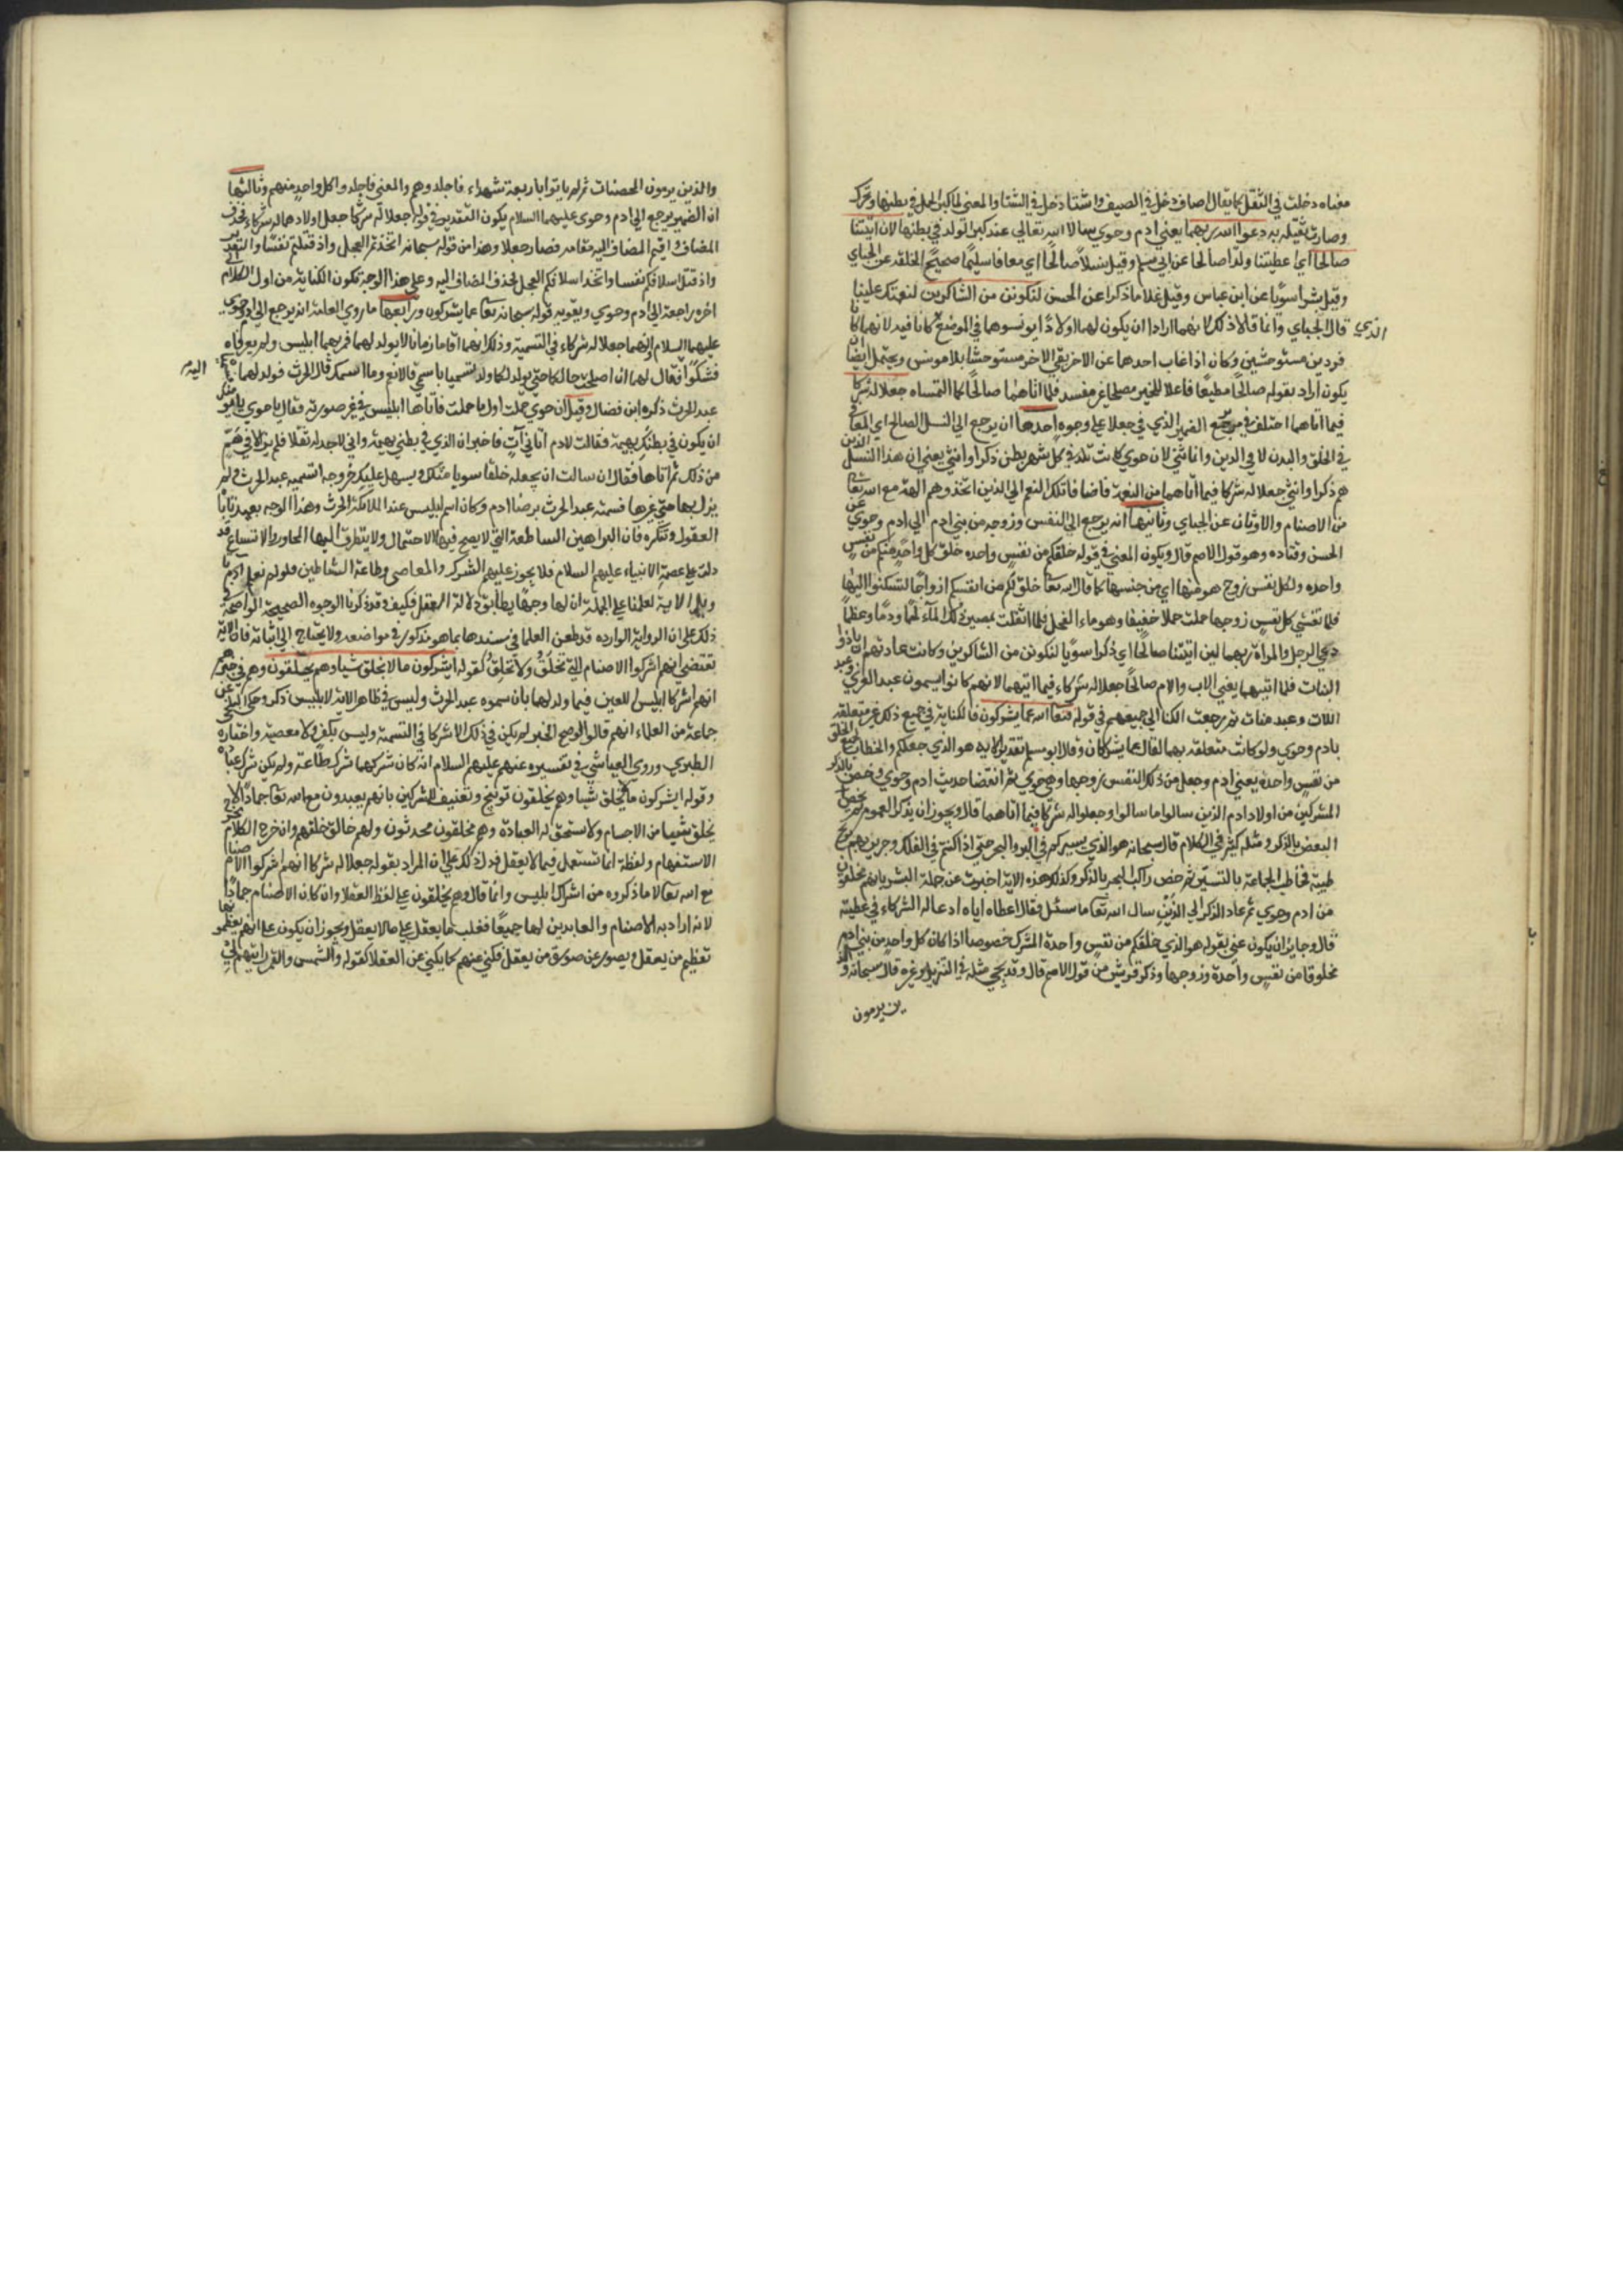 معناه دخلت في الثقل كما يقال اصاف دخل في الصيف واشتا دخل في الشتا والمعنى لما كبر الحمل في بطنها وتحرك
وصارت ثقيله به دعوا الله ربهما يعني ادم وحوي سالا الله تعالي عند كبر الولد في بطنها لان اتيتنا
صالحا اي اعطيتنا ولدا صالحا عن ابي مسلم وقيل نسلا صالحا اي معافا سليما صحيح الخلقه عن الجباي
وقيل بشرا سويا عن ابن عباس وقيل غلاما ذكرا عن الحسن لنكونن من الشاكرين لنعمتك علينا
قال الجباي وانما قالا ذلك لانهما ارادا ان يكون لهما اولادا يونسوهما في الموضع الذي كانا فيه لانهما كانا
فردين مستوحشين وكان اذا غاب احدها عن الاخر بقي الاخر مستوحشا بلا مونس ويحتمل ايضا ان
يكون اراد بقوله صالحا مطيعا فاعلا للخير مصلحا غير مفسد فلما اتاهما صالحا كما التمساه جعلا له شركا
فيما اتاهما اختلف في مرجع الضمير الذي في جعلا علي وجوه احدها ان يرجع الي النسل الصالح اي المعافا
في الخلق والبدن لا في الدين وانما ثني لان حوي كانت تلد في كل بطن ذكرا وانثي يعني ان هذا النسل الذين
هم ذكرا وانثي جعلا له شركا فيما اتاهما من النعمة فاضافا تلك النعم الي الذين اتخذوهم الهة مع الله تعا
من الاصنام والاوثان عن الجباي وثانيها انه يرجع الي النفس وزوجه من بني ادم الي ادم وحوي عن
الحسن وقتاده وهو قول الاصم قال ويكون المعني في قوله خلقكم من نفس واحده خلق كل واحد منكم من نفس
واحده ولكل نفس زوج هو منها اي من جنسها كما قال الله تعا خلق لكم من انفسكم ازواجا لتسكنوا اليها
فلما تغشي كل نفس زوجها حملت حملا خفيفا وهو ماء الفحل فلما اثقلت بمصير ذلك الماء لحما ودما وعظما
دعي الرجل والمراة ربهما لين اتيتنا صالحا اي ذكرا سويا لنكونن من الشاكرين وكانت عادتهم ان ياذوا
البنات فلما اتيهما يعني الاب والام صالحا جعلا له شركاء فيما اتيهما لانهم كانوا يسمون عبد العزي وعبد
اللات وعبد منات ثم رجعت الكنا الي جميعهم في قوله فتعا الله عما يشركون فالكناية في جميع ذلك غير متعلقه
بادم وحوي ولو كانت متعلقه بهما لقال عما يشركان وقال ابو مسلم تقدير الايه هو الذي جعلكم والخطاب لجميع الخلق
من نفس واحدة يعني ادم وجعل من ذلك النفس زوجها وهي حوي ثم انقضا حديث ادم وحوي وخص بالذكر
المشركين من اولاد ادم الذين سالوا ما سالوا وجعلوا له شركا فيما اتاهما قال ويجوز ان يذكر العموم ثم يخص
البعض بالذكر ومثله كثير في الكلام قال سبحانه هو الذي يسيركم في البر والبحر حتي اذا كنتم في الفلك وجرين بهم بريح
طيبة فخاطب الجماعة بالتسير ثم خص راكب البحر بالذكر وكذلك هذه الاية اخبرت عن جملة البشر بانهم مخلوقون
من ادم وحوي ثم عاد الذكر الي الذين سال الله تعا ما سئل فقال اعطاه اياه ادعا له الشركاء في عطيته
قال وجايز ان يكون عني بقوله هو الذي خلقكم من نفس واحدة المشرك خصوصا اذا كان كل واحد من بني ادم
مخلوقا من نفس واحدة وزوجها وذكر قريش من قول الاصم قال وقد يجي مثله في التنزيل وغيره قال سبحانه والذ
ين يرمون
والذين يرمون المحصنات ثم لم ياتوا باربعة شهداء فاجلدوهم والمعني فاجلدوا كل واحد منهم وثالثها
ان الضمير يرجع الي ادم وحوي عليهما السلام يكون التقدير في قوله جعلا له شركا جعل اولادهما له شركاء فحذف
المضاف واقيم المضاف اليه مقامه فصار جعلا وهذا من قوله سبحانه اتخذتم العجل واذ قتلتم نفسا والتقدير
واذ قتل اسلافكم نفسا واتخذ اسلافكم العجل فحذف المضاف اليه وعلي هذا الوجه تكون الكناية من اول الكلام الي
اخره راجعة الي ادم وحوي ويقويه قوله سبحانه تعا عما يشركون ورابعها ما روي العامة انه يرجع الي ادم وحوي
عليهما السلام وانهما جعلا له شركاء في التسمية وذلك انهما اقاما زمانا لا يولد لهما فمر بهما ابليس ولم يعرفاه
فشكوا اليه فقال لهما ان اصلحت حالكما حتي يولد لكما ولد اتسميا باسمي قالا نعم وما اسمك قال الحرث فولد لهما فسمياه
عبد الحرث ذكره ابن فضال وقيل ان حوي حملت اول ما حملت فاتاها ابليس في غير صورته فقال يا حوي ما يؤمنك
ان يكون في بطنك بهيمة فقالت لادم اتاني آت فاخبر ان الذي في بطني بهيمة واني لاجد له ثقلا فلم يزالا في هم
من ذلك ثم اتاها فقال ان سالت ان يجعله خلقا سويا مثلك ويسهل عليك خروجه اتسميه عبد الحرث ولم
يزل بها حتي غرها فسمته عبد الحرث برضا ادم وكان اسم ابليس عند الملائكة الحرث وهذا الوجه بعيد تاباه
العقول وتنكره فان البراهين الساطعة التي لا يصح فيها الاحتمال ولا يتطرق اليها المجاز والاتساع قد
دلت علي عصمة الانبياء عليهم السلام فلا يجوز عليهم الشرك والمعاصي وطاعة الشياطين فلو لم نعلم تاويل
الاية لعلمنا علي الجملة ان لها وجها يطابق دلالة العقل فكيف وقد ذكرنا الوجوه الصحيحة الواضحة في
ذلك علي ان الرواية الوارده قد طعن العلما في سندها بما هو مذكور في مواضعه ولا يحتاج الي اثباته فان الاية
تقتضي انهم اشركوا الاصنام التي تخلق ولا تخلق لقوله ايشركون ما لا يخلق شيا وهم يخلقون وهم في خبرهم
انهم اشركا ابليس اللعين فيما ولد لهما بان سموه عبد الحرث وليس في ظاهر الاية لابليس ذكر وحكي البلخي عن
جماعة من العلماء انهم قالوا لو صح الخبر لم يكن في ذلك الا اشركا في التسمية وليس بكفر ولا معصية واختاره
الطبري وروي العياشي في تفسيره عنهم عليهم السلام انه كان شركهما شرك طاعة ولم يكن شرك عبادة
وقوله ايشركون ما لا يخلق شيا وهم يخلقون توبيخ وتعنيف للمشركين بانهم يعبدون مع الله تعا جمادا لا
يخلق شييا من الاجسام ولا يستحق له العبادة وهم مخلقون محدثون ولهم خالق خلقهم وان خرج الكلام مخرج
الاستفهام ولفظة انما تستعمل فيما لا يعقل فدل ذلك علي ان المراد بقوله جعلا له شركا انهم اشركوا الاصنام
مع الله تعا لا ما ذكروه من اشراك ابليس وانما قال وهم يخلقون علي لفظ العقلا وان كان الاصنام جمادا
لانه اراد به الاصنام والعابدين لها جميعا فغلب ما يعقل علي ما لا يعقل ويجوز ان يكون علي انهم يعظمونها
تعظيم من يعقل ويصور عن صورة من يعقل فكني عنهم كما يكني عن العقلا كقوله والشمس والقمر رايتهم لي